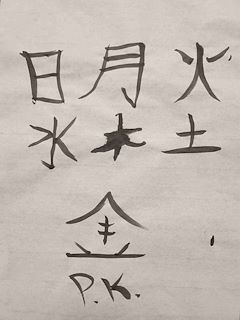 日月火
水木土
金
P.K.